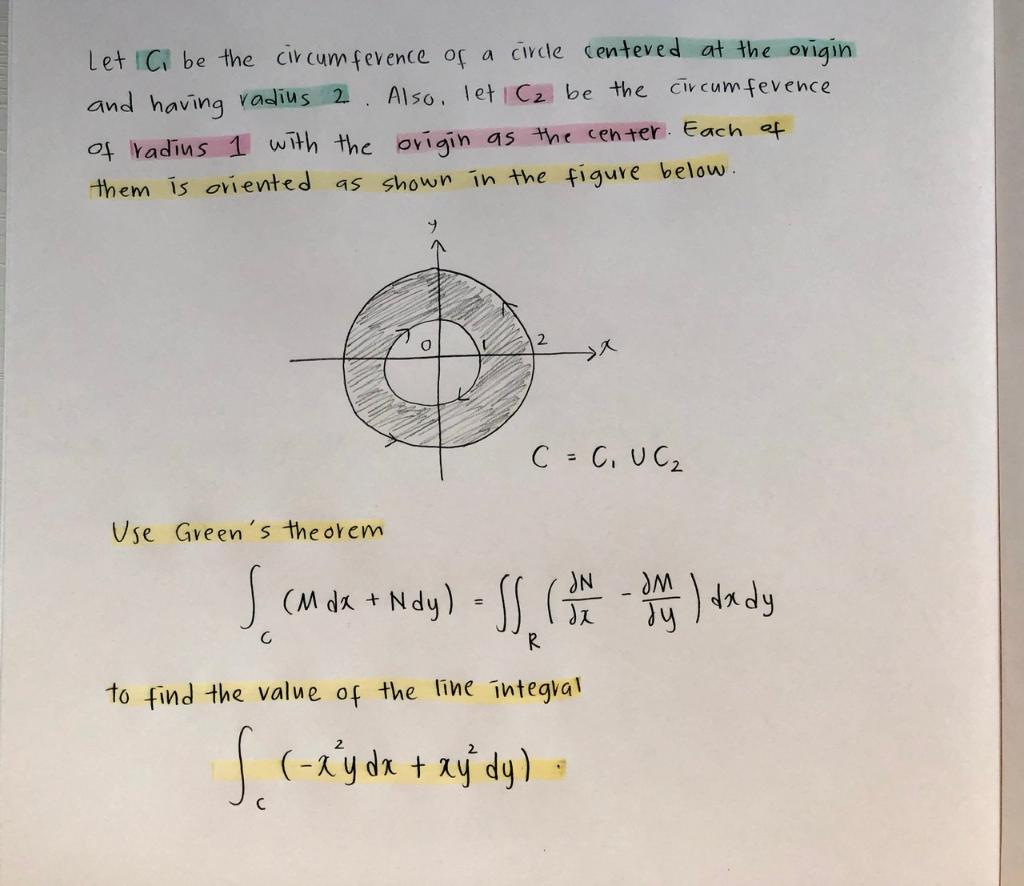 Let C₁ be the circumference of a circle centered at the origin
and having radius 2 . Also, let C₂ be the circumference
of radius 1 with the origin as the center. Each of
them is oriented as shown in the figure below.
y
0 1 2 x
C = C₁ ∪ C₂
Use Green's theorem
∫_C (M dx + N dy) = ∬_R (∂N/∂x - ∂M/∂y) dx dy
to find the value of the line integral
∫_C (-x²y dx + xy² dy) .